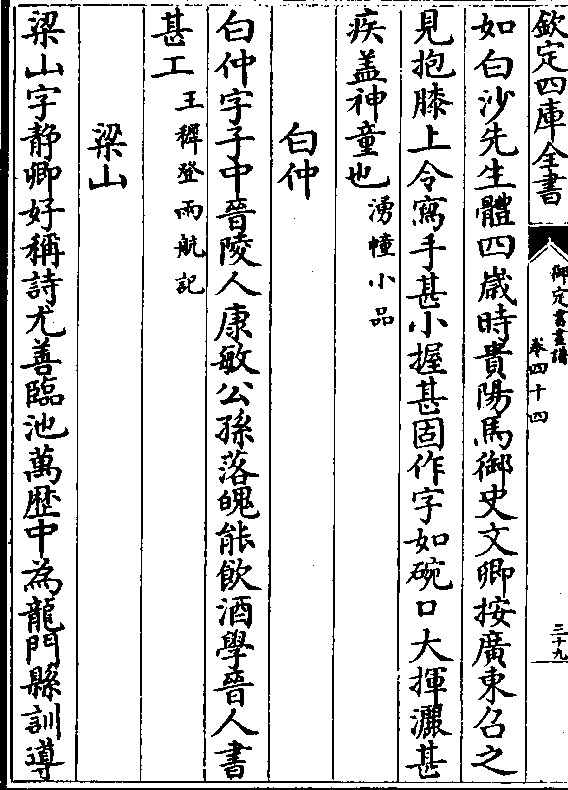 欽定四庫全書
御定書畫譜
卷四十四
三十九
如白沙先生體四歲時貴陽馬御史文卿按廣東召之
見抱膝上令寫手甚小握甚固作字如碗口大揮灑甚
疾盖神童也湧幢小品
白仲
白仲字子中晉陵人康敏公孫落魄能飲酒學晉人書
甚工王穉登雨航記
梁山
梁山字静卿好稱詩尤善臨池萬歴中為龍門縣訓導